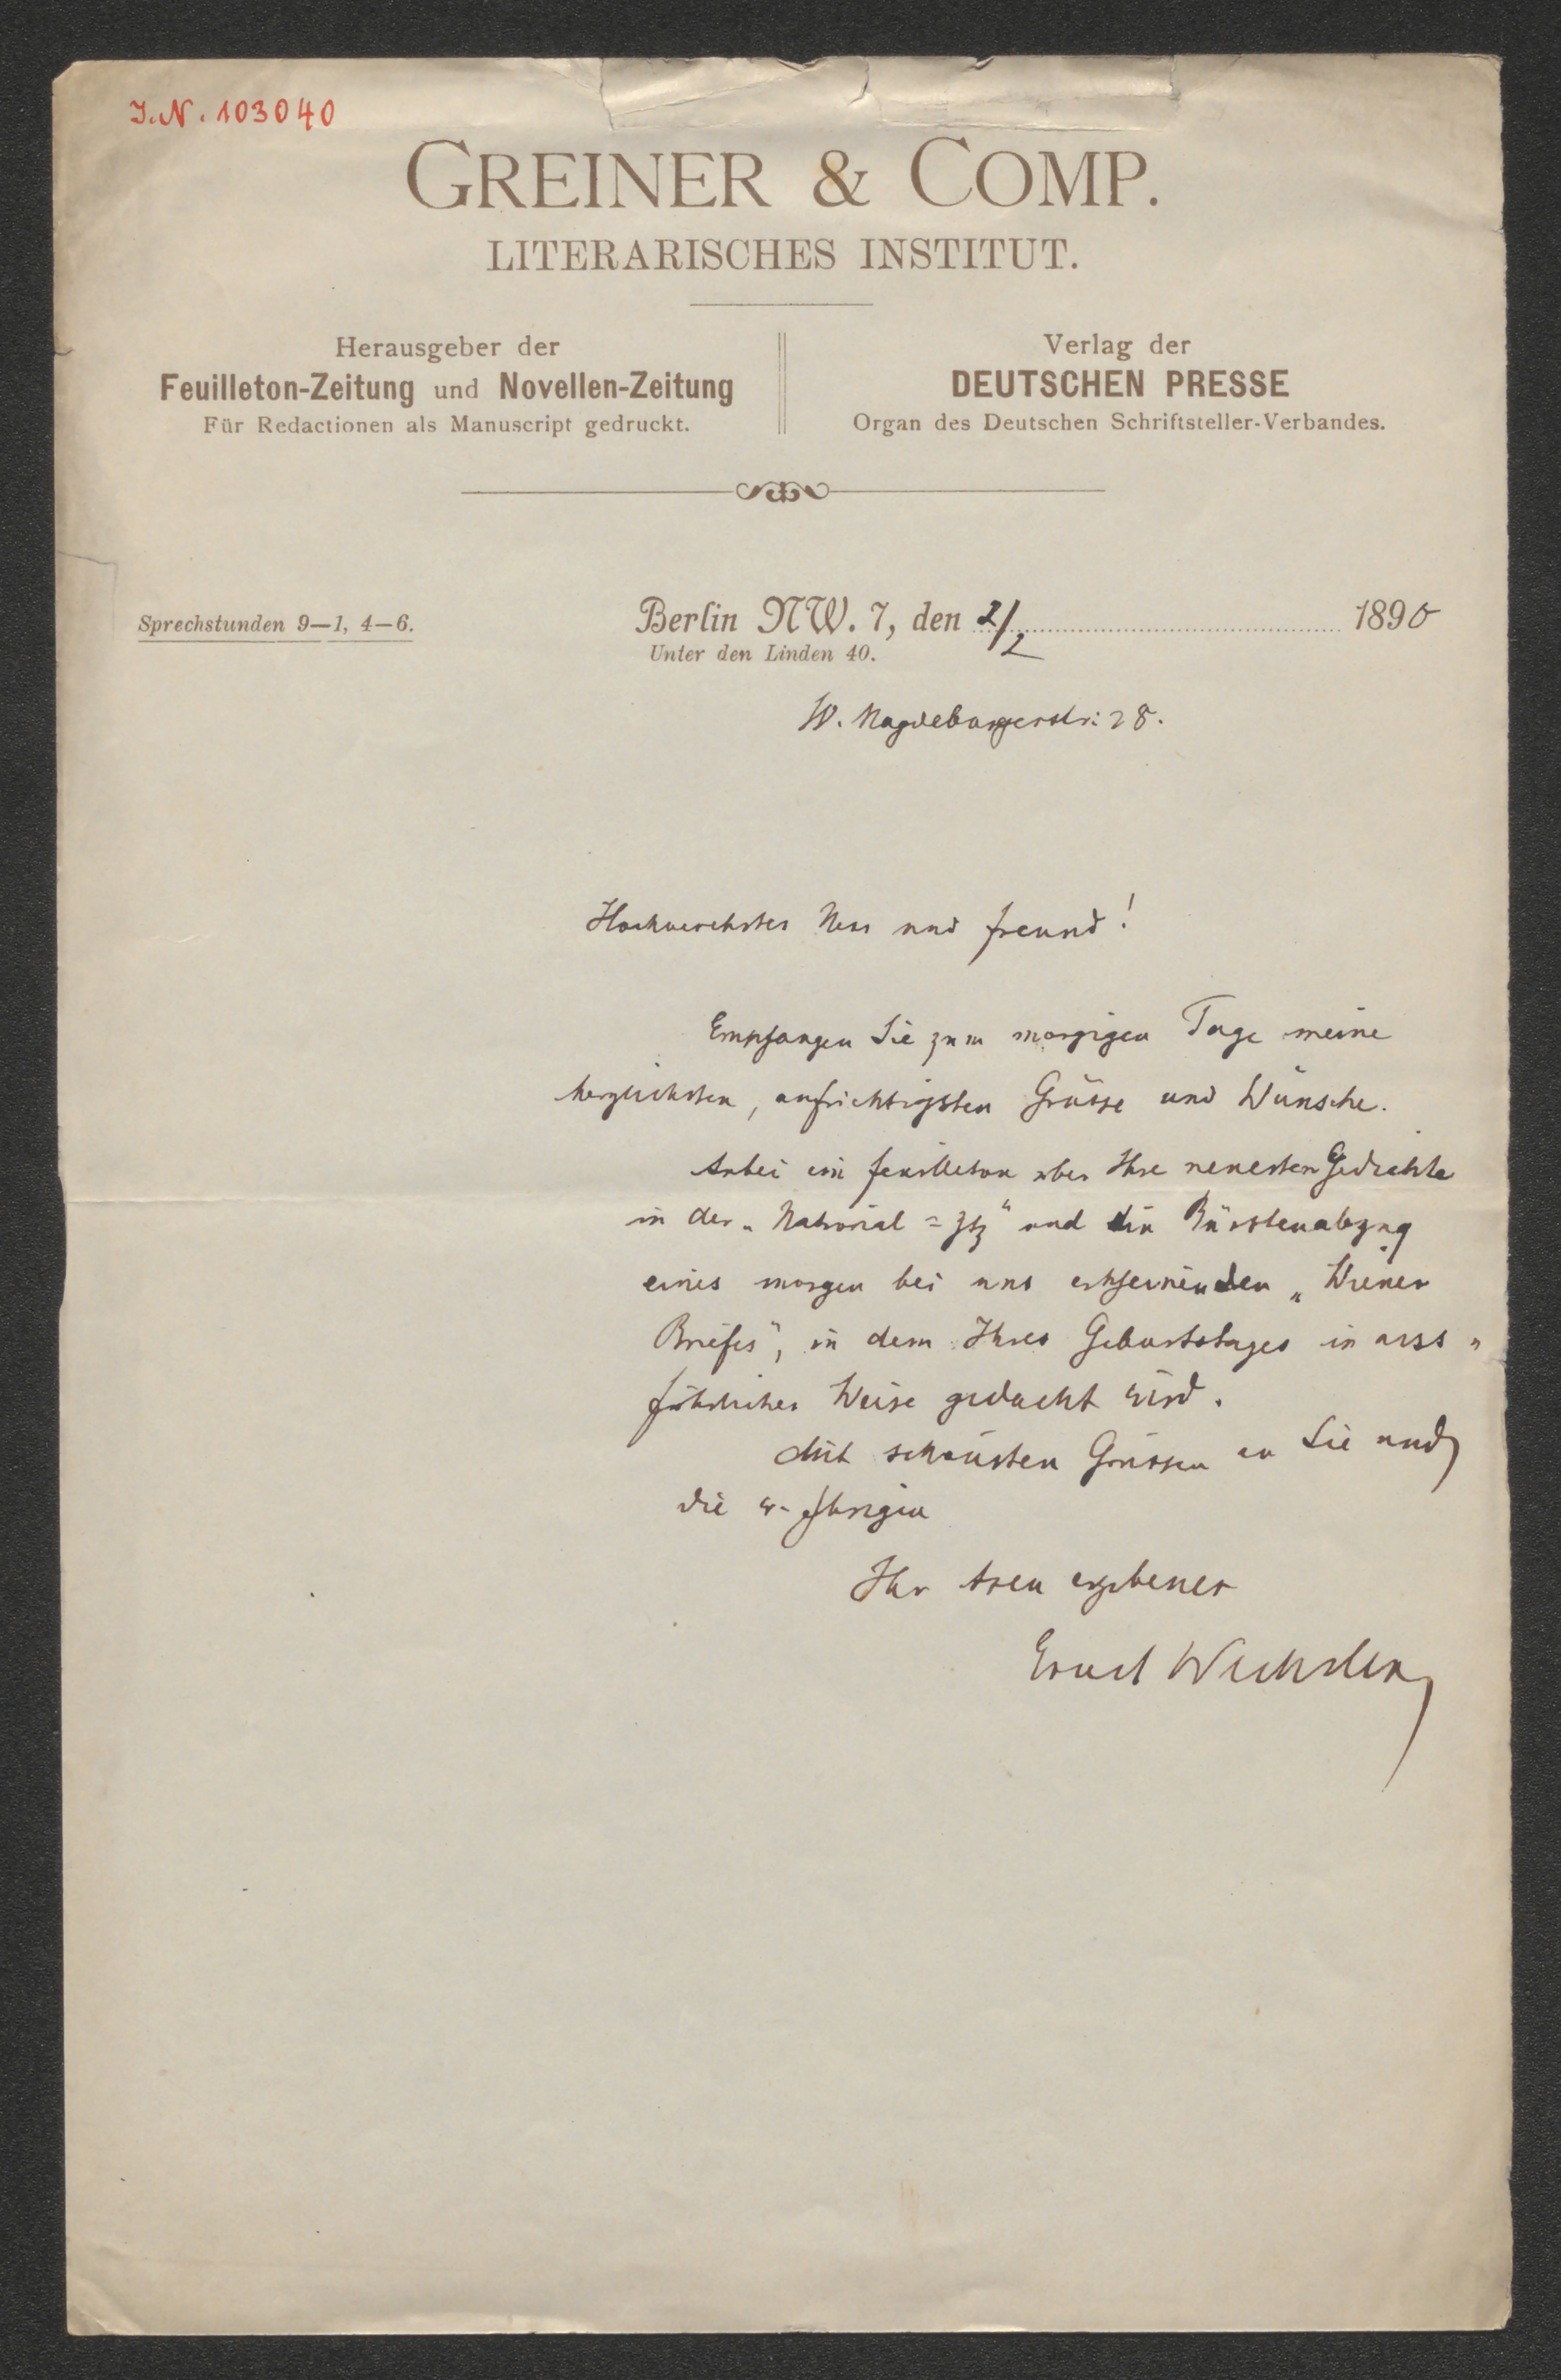 I.N. 103040
GREINER & COMP.
LITERARISCHES INSTITUT.
Herausgeber der
Feuilleton-Zeitung und Novellen-Zeitung
Für Redactionen als Manuscript gedruckt.
Verlag der
DEUTSCHEN PRESSE
Organ des Deutschen Schriftsteller-Verbandes.
Sprechstunden 9—1, 4—6.
Berlin NW. 7, den 2/2 1890
Unter den Linden 40.
W. Magdeburgerstr: 28.
Hochverehrter Herr und Freund!
Empfangen Sie zum morgigen Tage meine
herzlichsten, aufrichtigsten Grüsse und Wünsche.
Anbei ein Feuilleton über Ihre neuesten Gedichte
in der „National=Ztg" und ein Bürstenabzug
eines morgen bei uns erscheinenden „Wiener
Briefes", in dem Ihres Geburtstages in aus„
führlicher Weise gedacht wird.
Mit schönsten Grüssen an Sie und
die w. Ihrigen
Ihr treu ergebener
Ernst Wechsler